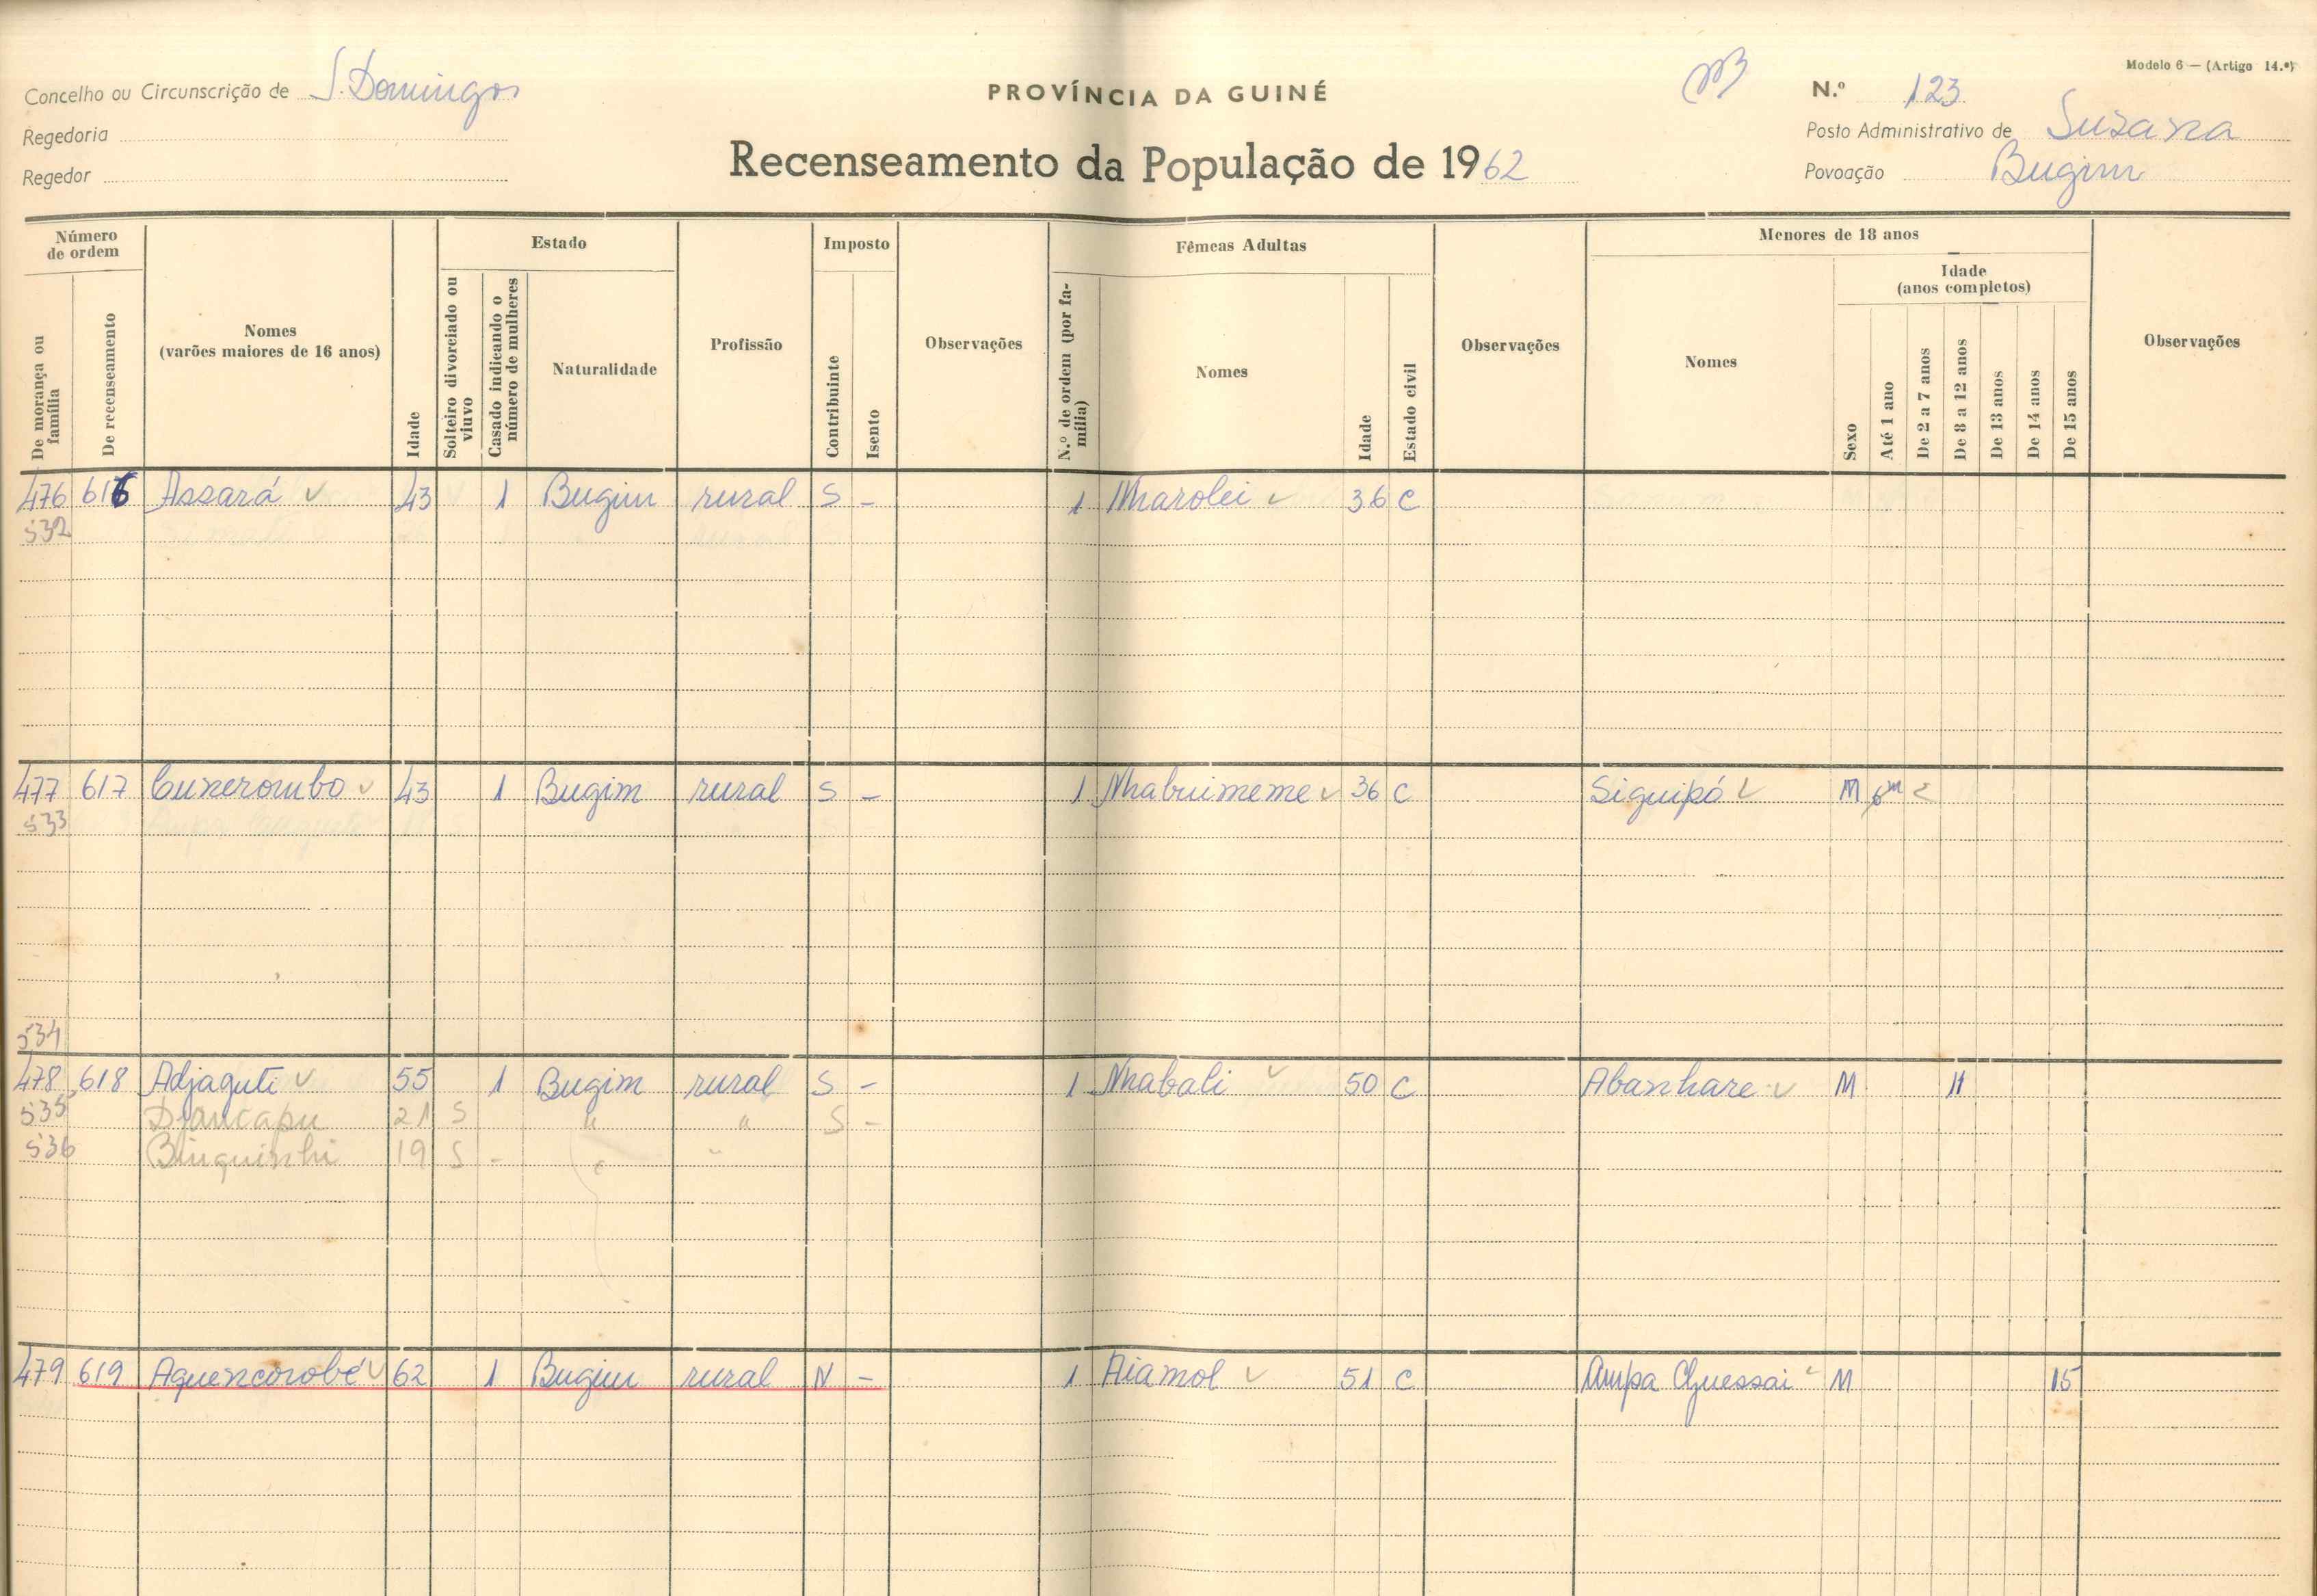 Modelo 6 — (Artigo 14.º)
Concelho ou Circunscrição de S. Domingos
PROVÍNCIA DA GUINÉ
N.º 123
Regedoria
Posto Administrativo de Suzana
Regedor
Recenseamento da População de 1962
Povoação Bugim
Número de ordem
Estado
Imposto
Fêmeas Adultas
Menores de 18 anos
Idade (anos completos)
De morança ou família
De recenseamento
Nomes (varões maiores de 16 anos)
Idade
Solteiro divorciado ou viuvo
Casado indicando o número de mulheres
Naturalidade
Profissão
Contribuinte
Isento
Observações
N.º de ordem (por família)
Nomes
Idade
Estado civil
Observações
Nomes
Sexo
Até 1 ano
De 2 a 7 anos
De 8 a 12 anos
De 13 anos
De 14 anos
De 15 anos
Observações
476 616 Assará 43 1 Bugim rural S - 1 Nharolei 36 C
532
477 617 Cuxerombo 43 1 Bugim rural S - 1 Nhabuimeme 36 C Siguipó M 6m
533
534
478 618 Adjaguti 55 1 Bugim rural S - 1 Nhabali 50 C Abanhare M 11
535 Djancapu 21 S " " S -
536 Binguinhi 19 S - " "
479 619 Aquencorobé 62 1 Bugim rural N - 1 Aiamol 51 C Ampa Guessai M 15